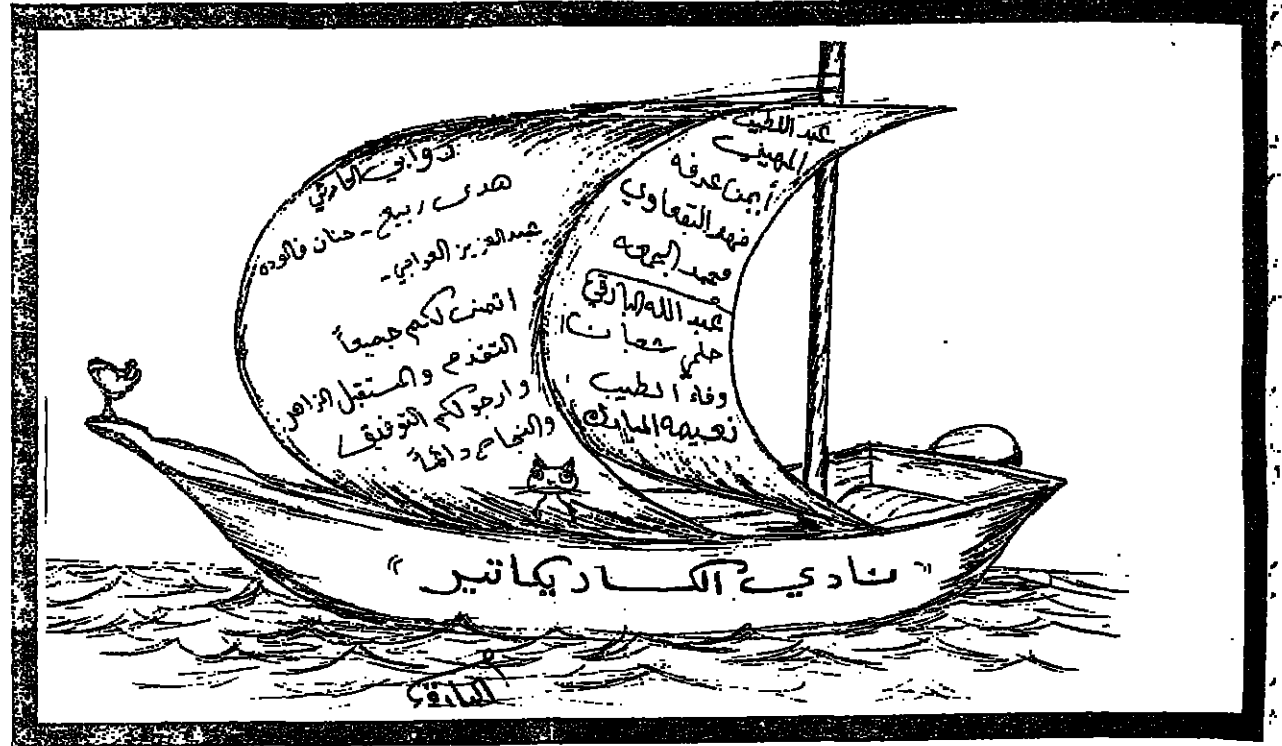 عبد اللطيف
المهيني
أيمن عرفه
فهد التقعاوي
محمد الجمعه
عبد الله البارقي
حلمي شعبان
وفاء الطيب
نعيمه المبارك
الحارثي
هدى ربيع - حنان فالوده
عبدالعزيز العواجي -
اتمنى لكم جميعاً
التقدم والمستقبل الزاهر
وارجو لكم التوفيق
والنجاح دائماً
"نادي الكاريكاتير"
البارقي